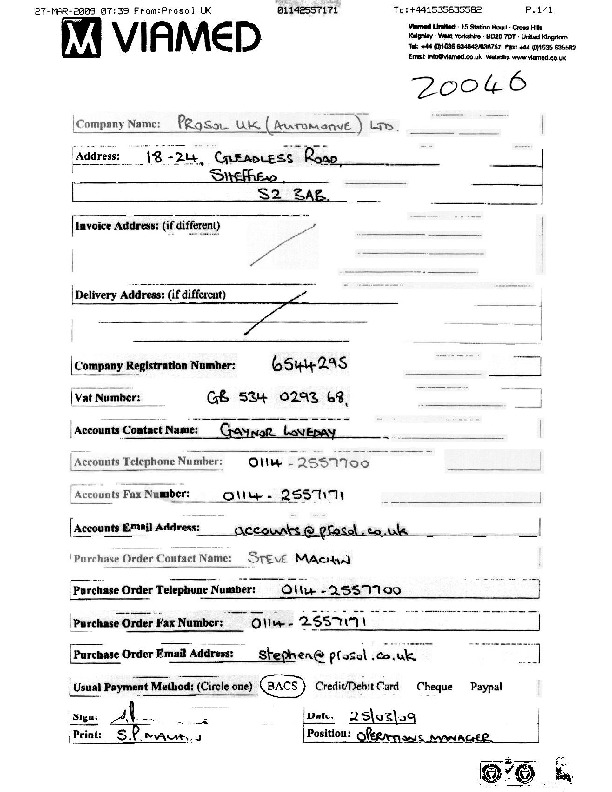 27-MAR-2009 07:39 From:Prosol UK 01142557171 To:+441535635582 P.1/1
VIAMED
Viamed Limited · 15 Station Road · Cross Hills
Keighley · West Yorkshire · BD20 7DT · United Kingdom
Email: info@viamed.co.uk Website: www.viamed.co.uk
20046
Company Name: PROSOL UK (AUTOMOTIVE) LTD.
Address: 18-24, GLEADLESS ROAD,
SHEFFIELD.
S2 3AB.
Invoice Address: (if different)
Delivery Address: (if different)
Company Registration Number: 6544295
Vat Number: GB 534 0293 68.
Accounts Contact Name: GAYNOR LOVEDAY
Accounts Telephone Number: 0114 - 2557700
Accounts Fax Number: 0114 - 2557171
Accounts Email Address: accounts@prosol.co.uk
Purchase Order Contact Name: STEVE MACHIN
Purchase Order Telephone Number: 0114 - 2557700
Purchase Order Fax Number: 0114 - 2557171
Purchase Order Email Address: stephen@prosol.co.uk
Usual Payment Method: (Circle one) BACS Credit/Debit Card Cheque Paypal
Sign: Date: 25/03/09
Print: S.P. MACHIN Position: OPERATIONS MANAGER